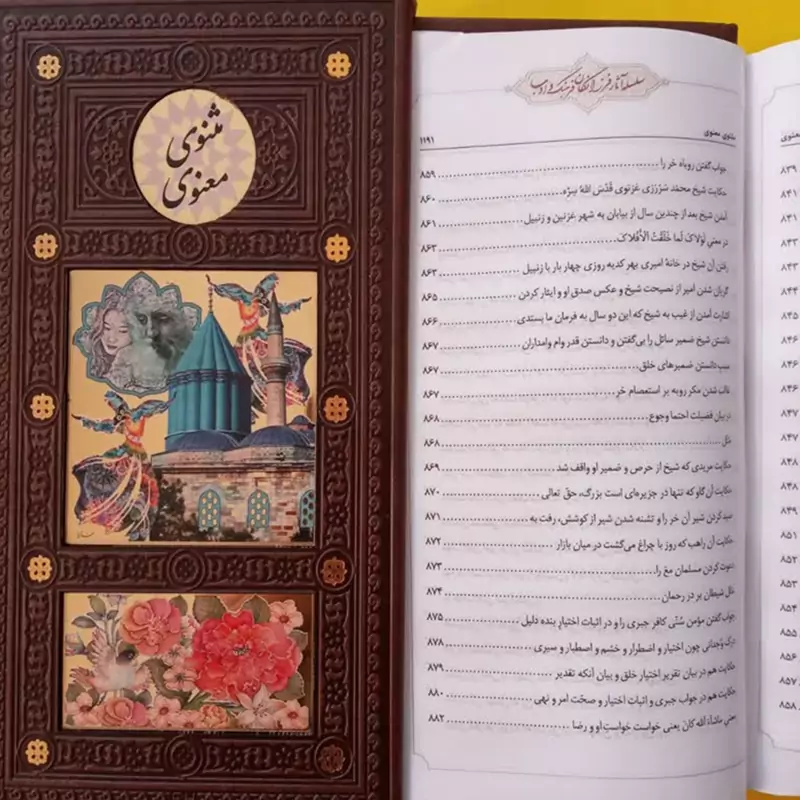 مثنوی
معنوی
سلسله آثار فرزانگان فرهنگ و ادب
مثنوی معنوی
۱۱۹۱
جواب گفتن روباه خر را ........ ۸۵۹
حکایت شیخ محمد سَررَزی غزنوی قَدَّسَ اللهُ سِرَّه ........ ۸۶۰
آمدن شیخ بعد از چندین سال از بیابان به شهر غزنین و زنبیل ........ ۸۶۱
در معنی لَولاکَ لَما خَلَقتُ الاَفلاکَ ........ ۸۶۳
رفتن آن شیخ در خانهٔ امیری بهر کدیه روزی چهار بار با زنبیل ........ ۸۶۳
گریان شدن امیر از نصیحت شیخ و عکس صدق او و ایثار کردن ........ ۸۶۵
اشارت آمدن از غیب به شیخ که این دو سال به فرمان ما بستدی ........ ۸۶۶
دانستن شیخ ضمیر سائل را بی‌گفتن و دانستن قدر وام وامداران ........ ۸۶۷
سبب دانستن ضمیرهای خلق ........ ۸۶۷
غالب شدن مکر روبه بر استعصام خر ........ ۸۶۷
در بیان فضیلت احتما وجوع ........ ۸۶۸
مثل ........ ۸۶۸
حکایت مریدی که شیخ از حرص و ضمیر او واقف شد ........ ۸۶۹
حکایت آن گاو که تنها در جزیره‌ای است بزرگ، حق تعالی ........ ۸۷۰
صید کردن شیر آن خر را و تشنه شدن شیر از کوشش، رفت به ........ ۸۷۱
حکایت آن راهب که روز با چراغ می‌گشت در میان بازار ........ ۸۷۲
دعوت کردن مسلمان مغ را ........ ۸۷۳
مثل شیطان بر در رحمان ........ ۸۷۴
جواب گفتن مؤمن سُنّی کافر جبری را و در اثبات اختیار بنده دلیل ........ ۸۷۵
درک وُجدانی چون اختیار و اضطرار و خشم و اصطبار و سیری ........ ۸۷۸
حکایت هم در بیان تقریر اختیار خلق و بیان آنکه تقدیر ........ ۸۷۹
حکایت هم در جواب جبری و اثبات اختیار و صحّت امر و نهی ........ ۸۸۰
معنی ماشاءَ الله کانَ یعنی خواست خواستِ او و رضا ........ ۸۸۲
۸۳۹
۸۴۱
۸۴۱
۸۴۳
۸۴۳
۸۴۴
۸۴۵
۸۴۶
۸۴۶
۸۴۷
۸۴۷
۸۴۸
۸۴۸
۸۴۹
۸۵۱
۸۵۲
۸۵۳
۸۵۴
۸۵۵
۸۵۶
۸۵۷
۸۵۸